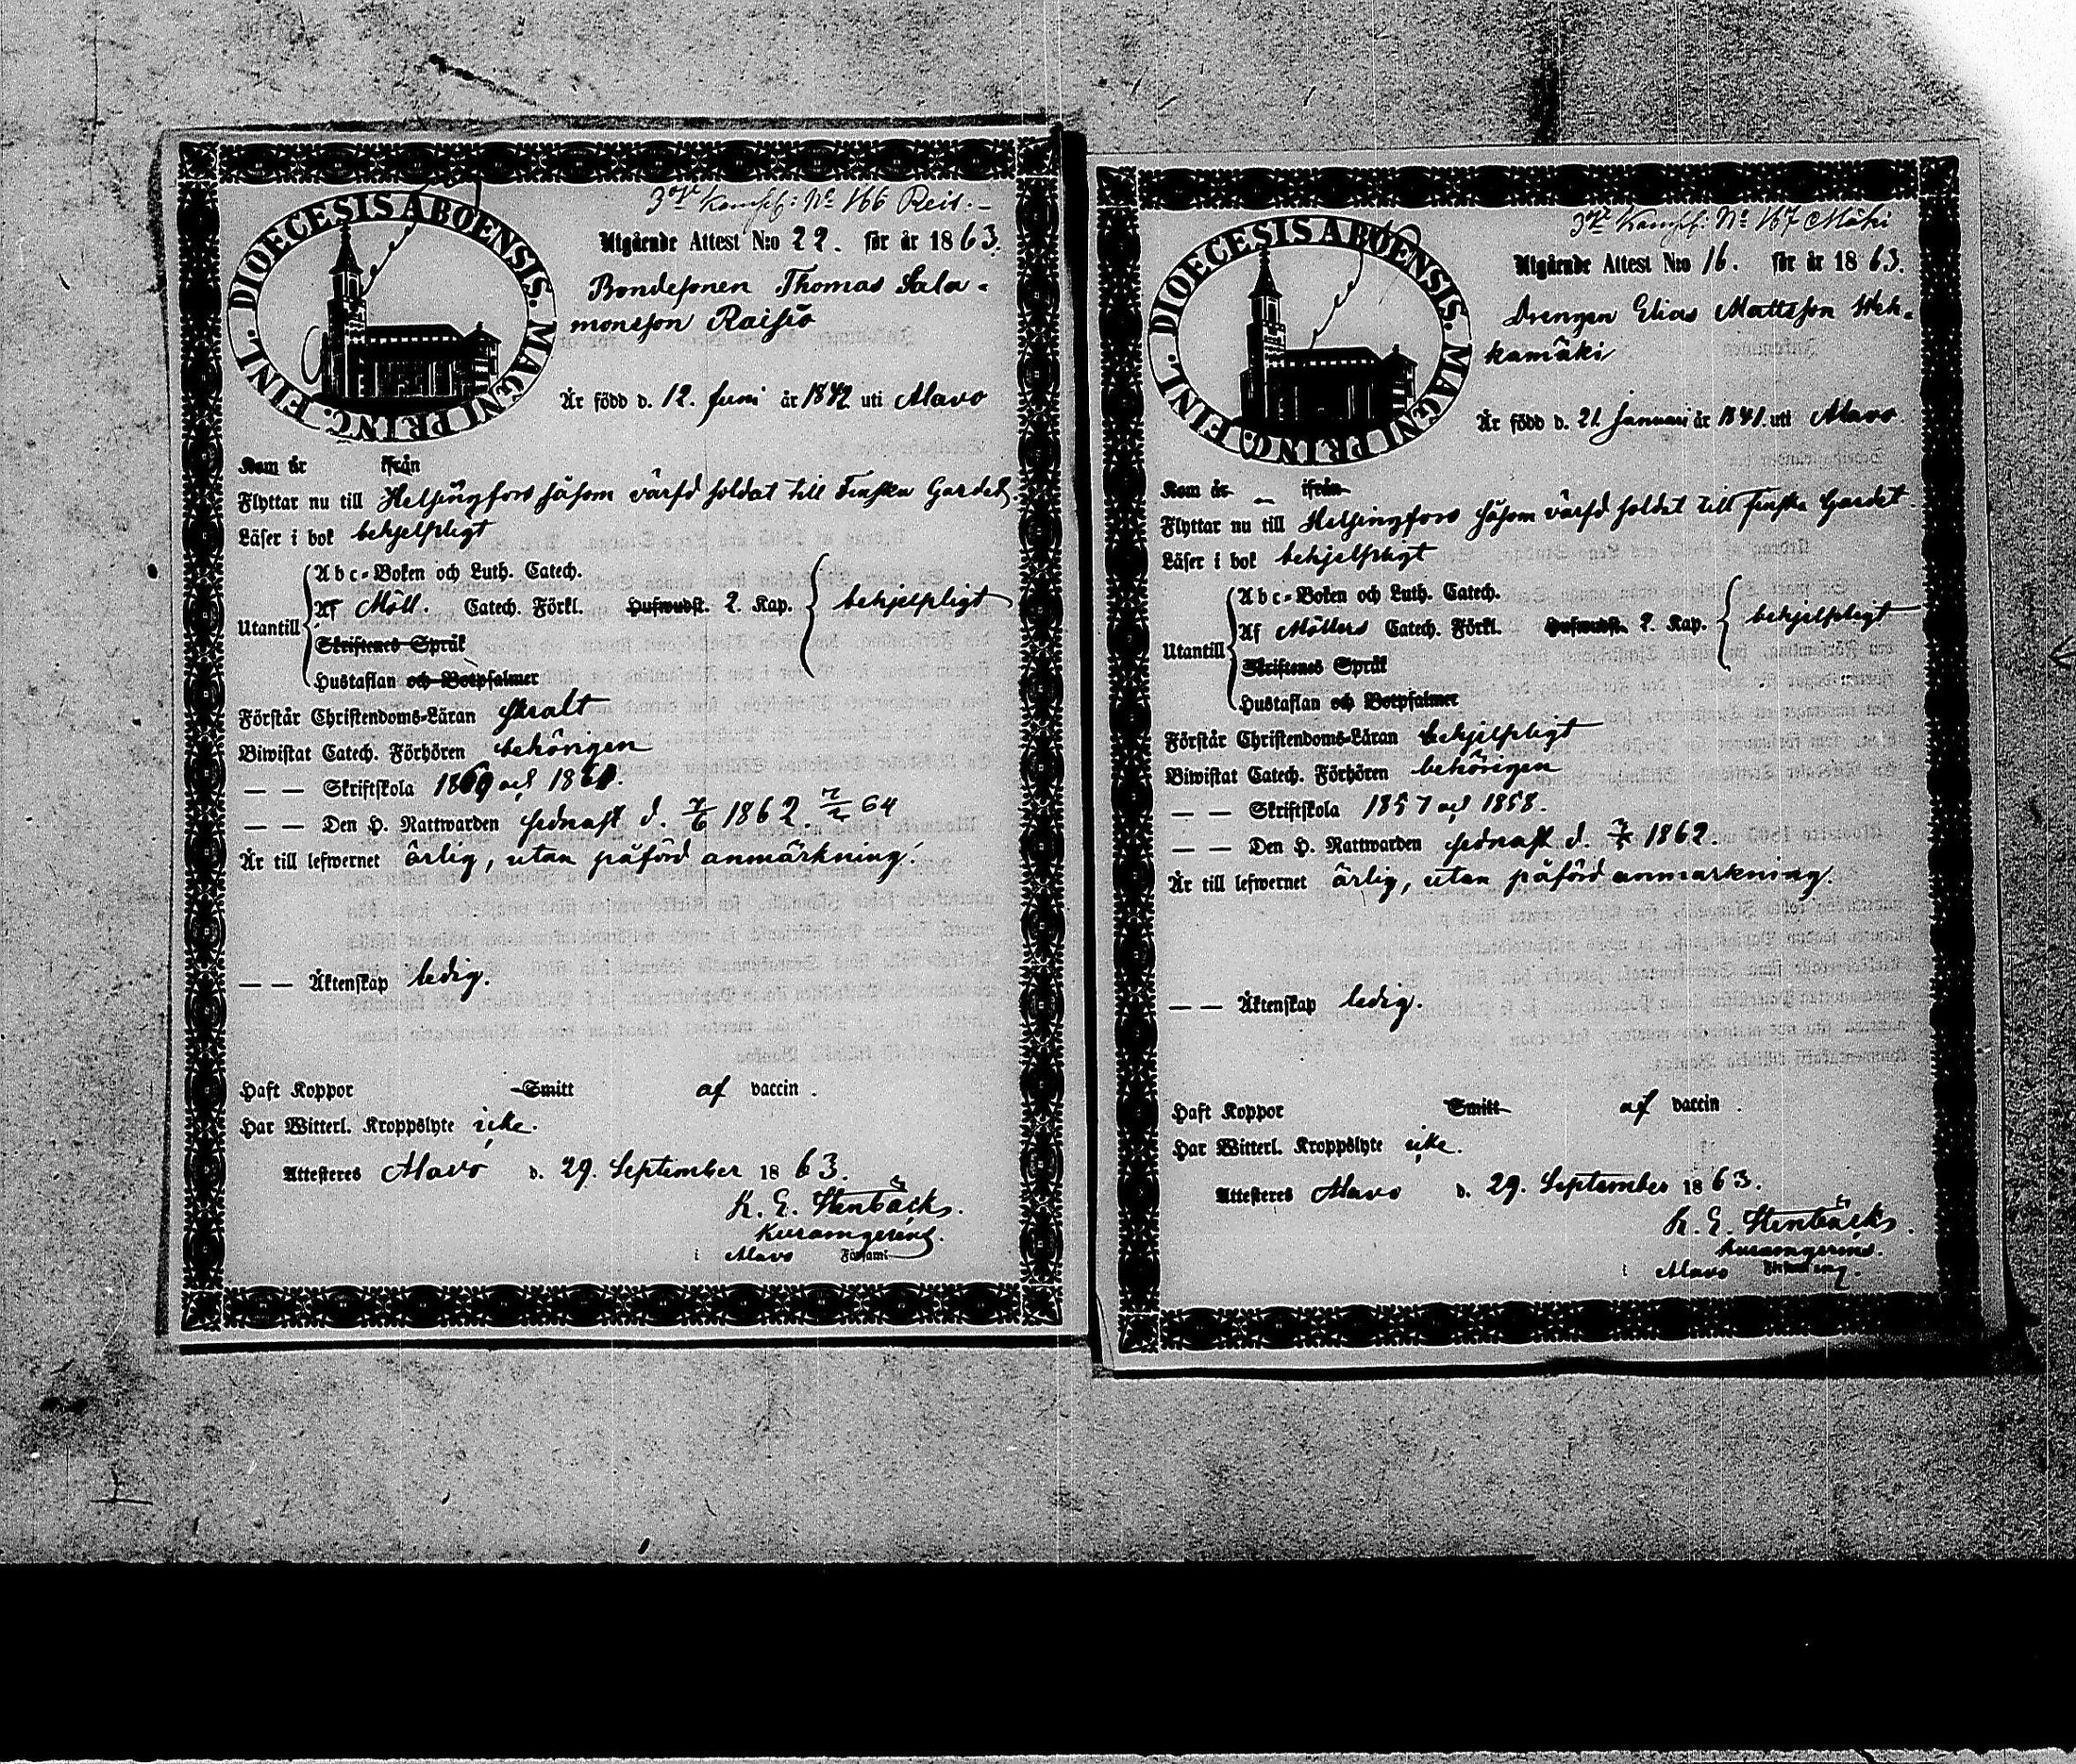 DIOECESIS ABOENSIS. MAGNI PRINC. FINL.
3 Komp: No 166 Reis.
Utgående Attest N:o 22. för år 1863.
Bondesonen Thomas Sala-
monsson Raisio
Är född d. 12. Juni år 1842 uti Alavo
Kom år ifrån
Flyttar nu till Helsingfors såsom värfd soldat till Finska Gardet.
Läser i bok behjelpligt
Abc-Boken och Luth. Catech.
Utantill Af Möll. Catech. Förkl. Hufwudst. 2. Kap. behjelpligt
Skriftenes Språk
Hustaflan och Botpsalmer
Förstår Christendoms-Läran
Biwistat Catech. Förhören behörigen
— — Skriftskola
— — Den H. Nattwarden sednast d. 7/6 1862. 64
Är till lefwernet ärlig, utan påförd anmärkning.
— — Äktenskap ledig.
Haft Koppor Smitt af vaccin.
Har Witterl. Kroppslyte icke.
Attesteres Alavo d. 29. September 1863.
K. E. Stenbäck.
i Alavo Församl
DIOECESIS ABOENSIS. MAGNI PRINC. FINL.
3 Komp: No 167 Mäki
Utgående Attest N:o 16. för år 1863.
Drengen Elias Mattsson Weh-
kamäki
Är född d. 21. Januari år 1841. uti Alavo.
Kom år ifrån
Flyttar nu till Helsingfors såsom värfd soldat till Finska Gardet.
Läser i bok behjelpligt
Abc-Boken och Luth. Catech.
Utantill Af Möllers Catech. Förkl. Hufwudst. 2. Kap. behjelpligt
Skriftenes Språk
Hustaflan och Botpsalmer
Förstår Christendoms-Läran behjelpligt
Biwistat Catech. Förhören behörigen
— — Skriftskola 1857 och 1858.
— — Den H. Nattwarden sednast d. 1862.
Är till lefwernet ärlig, utan påförd anmärkning.
— — Äktenskap ledig.
Haft Koppor Smitt af vaccin.
Har Witterl. Kroppslyte icke.
Attesteres Alavo d. 29. September 1863.
K. E. Stenbäck.
i Alavo